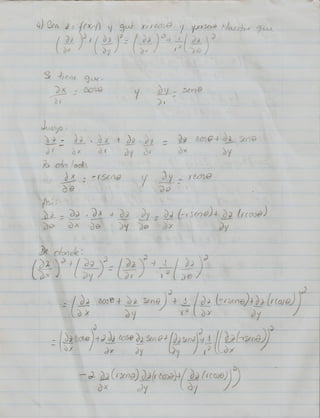 4) Sea z = f(x,y) y que x=rcosθ y y=rsenθ Mostrar que
(∂z/∂x)² + (∂z/∂y)² = (∂z/∂r)² + 1/r² (∂z/∂θ)²
Se tiene que:
∂x/∂r = cosθ y ∂y/∂r = senθ
Luego
∂z/∂r = ∂z/∂x · ∂x/∂r + ∂z/∂y · ∂y/∂r = ∂z/∂x cosθ + ∂z/∂y senθ
Por otro lado
∂x/∂θ = -rsenθ y ∂y/∂θ = rcosθ
Así:
∂z/∂θ = ∂z/∂x · ∂x/∂θ + ∂z/∂y ∂y/∂θ = ∂z/∂x (-rsenθ) + ∂z/∂y (rcosθ)
De donde:
(∂z/∂x)² + (∂z/∂y)² = (∂z/∂r)² + 1/r² (∂z/∂θ)²
= (∂z/∂x cosθ + ∂z/∂y senθ)² + 1/r² (∂z/∂x (-rsenθ) + ∂z/∂y (rcosθ))²
= (∂z/∂x cosθ)² + 2 ∂z/∂x cosθ ∂z/∂y senθ + (∂z/∂y senθ)² + 1/r² ((∂z/∂x (-rsenθ))²
- 2 ∂z/∂x (rsenθ) ∂z/∂y (rcosθ) + (∂z/∂y (rcosθ))²)